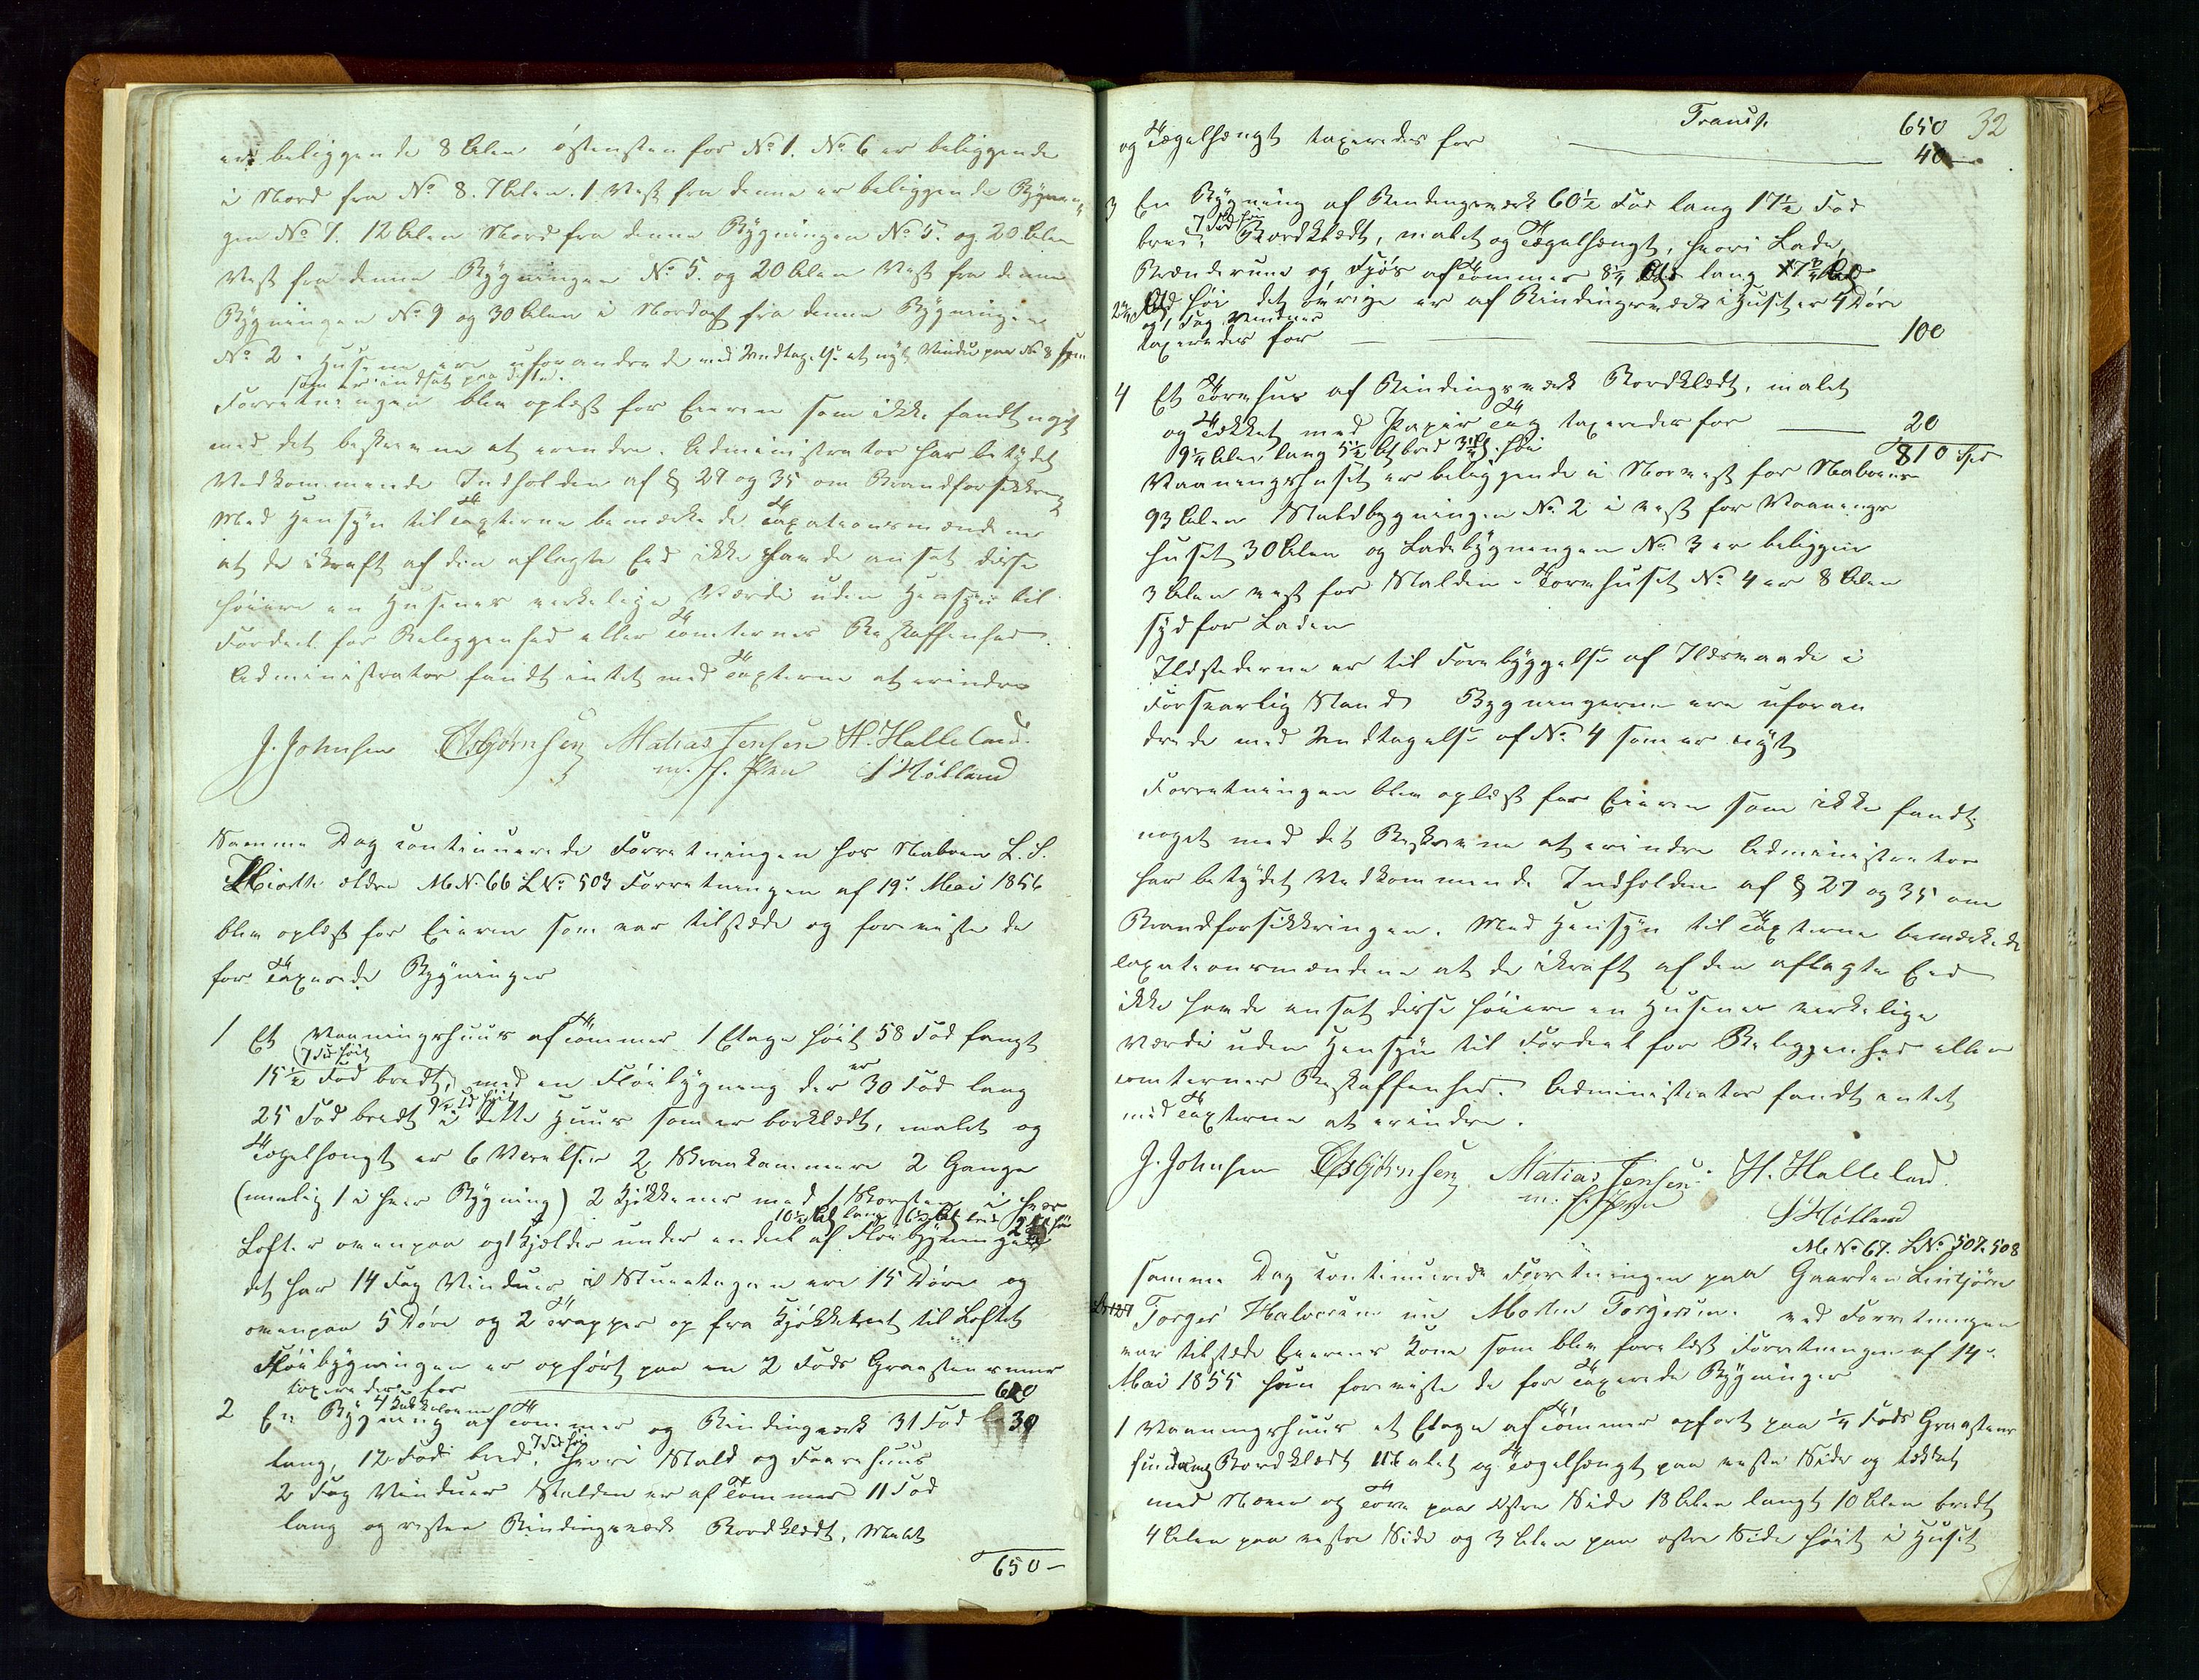 er beliggende 8 Alen østensten for No 1. No 6 er beliggende
i Nord fra No 8. 7 Alen. I Vest fra denne er beliggende Bygnin
gen No 7. 12 Alen Nord fra denne Bygningen No 5. og 20 Alen
Vest fra denne Bygningen No 5. og 20 Alen Vest fra denne
Bygningen No 9 og 30 Alen i Nordost fra denne Bygningen
No 2. Husene ere uforandrede med Undtagelse et nyt Vindu paa No 8
som er indsat paa dette.
Forretningen blev oplæst for Eieren som ikke fandt noget
med det beskrevne at erindre. Administrator har betydet
Vedkommende Indholden af § 27 og 35 om Brandforsikkring
Med Hensyn til Taxterne bemærkede Taxationsmændene
at de ikraft af den aflagte Eed ikke havde ansat disse
høiere en Husenes verkelige Værdi uden Hensyn til
Fordeel for Beleggenhed eller Tomternes Beskaffenhed.
Administrator fandt intet med Taxterne at erindre
J. Johnsen O Asbjørnsen Matias Jensen H. Halleland.
m. f. Pen S Høtland
Samme Dag continuerede Forretningen hos Naboen L. S.
Kiærtte ældre MNo 66 LNo 503 Forretningen af 19de Mai 1856
blev oplæst for Eieren som var tilstæde og foreviste de
for Taxerede Bygninger
1 Et Vaaningshuus af Tømmer 1 Etage høit 58 Fod langt
(7 Fod høit
15½ Fod bredt, med en Fløibygning der er 30 Fod lang
25 Fod bredt 9½ Fd høit i dette Huus som er borklædt, malet og
Tægelhængt er 6 Verelser 2 Kramkammere 2 Gange
(nemlig 1 i hver Bygning) 2 Kjøkkener med 1 Skorsten i hver
10½ Al lang 6½ Al bred 2 Al høi
Lofter ovenpaa og 1 Kjælder under endeel af Fløibygningen
det har 14 Fag Vinduer i Stueetagen ere 15 Døre og
ovenpaa 5 Døre og 2 Trapper op fra Kjøkkenet til Loftet
Fløibygningen er opført paa en 2 Fods Graasteensmuur
taxeredes for 620
2 En Bygning af Tømmer og Bindingværk 31 Fod 30
lang, 12 Fod bred, 7 Fod høi hvori Stald og Faarehuus
2 Fag Vinduer Stalden er af Tømmer 11 Fod
lang og resten Bindingværk Bordklædt, Malet
650 –
Transp. 650 32
og Tægelhængt taxeredes for 40
3 En Bygning af Bindingsværk 60½ Fod lang 17½ Fod
7 Fod høi
bred, Bordklædt, malet og Tægelhængt, hvori Lade,
Brænderum og Fjøs af Tømmer 8¼ Al lang 7¾ Al
høi det øvrige er af Bindingsværk i Huset er 4 Døre
og 1 Fag Vinduer
taxeredes for 100
4 Et Tørvhus af Bindingsværk Bordklædt, malet
og Tækket med Papir Tag taxeredes for 20
9¼ Alen lang 5½ Al bred 3¼ Al høi 810 Spd
Vaaningshuset er beliggende i Norvest for Naboens
93 Alen Staldbygningen No 2 i vest for Vaanings
huset 30 Alen og Ladebygningen No 3 er beliggen
3 Alen vest for Stalden. Tørvhuset No 4 er 8 Alen
syd for Laden
Ildstederne er til Forebyggelse af Ildsvaade i
Forsvarlig Stand Bygningerne ere uforan
drede med Undtagelse af No 4 som er nyt
Forretningen blev oplæst for Eieren som ikke fandt
noget med det Beskrevne at erindre Administrator
har betydet Vedkommende Indholden af § 27 og 35 om
Brandforsikkringen. Med Hensyn til Taxterne bemærkede
Taxationsmændene at de ikraft af den aflagte Eed
ikke havde ansat disse høiere en Husenes verkelige
Værdi uden Hensyn til Fordeel for Beleggenhed eller
Tomternes Beskaffenhed. Administrator fandt intet
med Taxterne at erindre.
J. Johnsen O Asbjørnsen Matias Jensen H. Halleland.
m. f. Pen S Høtland
MNo 67. LNo 507. 508
samme Dag continuerede Forretningen paa Gaarden Lintjørn
Torger Halvorsen nu Morten Torgersen. ved Forretningen
var tilstæde Eierens Kone som blev forelæst Forretningen af 14de
Mai 1855 hun foreviste de for Taxerede Bygninger
1 Vaaningshuus et Etage af Tømmer opført paa ¼ Fods Graasteens
fundament Bordklædt Malet og Tægelhængt paa vestre Side og tækket
med Næver og Tørv paa østre Side 18 Alen langt 10 Alen bredt
4 Alen paa vestre Side og 3 Alen paa østre Side høit i Huset